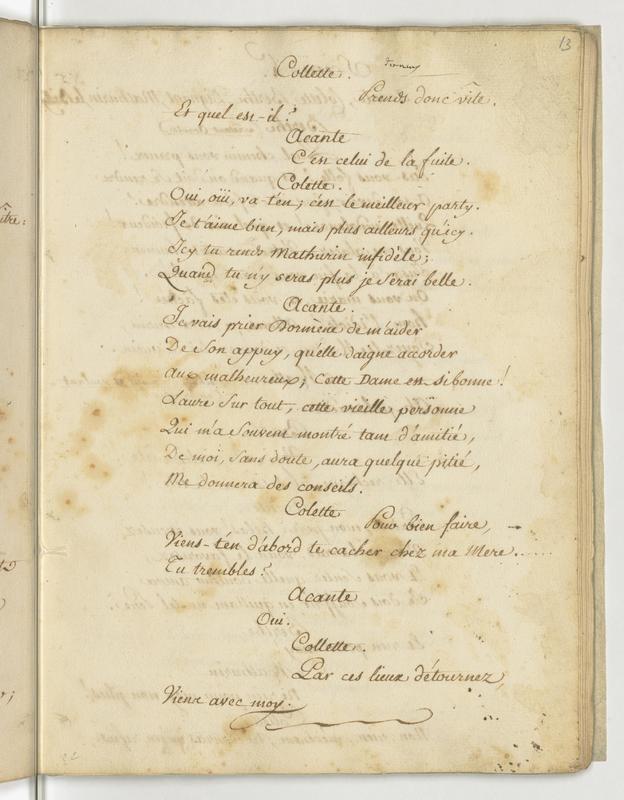 13
Collette.
Prends donc vîte.
Et quel est-il?
Acante
C'est celui de la fuite.
Colette.
Oui, oüi, va-t'en; c'est le meilleur party.
Je t'aime bien, mais plus ailleurs qu'icy.
Icy tu rends Mathurin infidéle;
Quand tu n'y seras plus je serai belle.
Acante.
Je vais prier Dormène de m'aider
De son appuy, qu'elle daigne accorder
Aux malheureux; Cette Dame est si bonne!
Laure sur tout, cette vieille personne
Qui m'a souvent montré tant d'amitié,
De moi, sans doute, aura quelque pitié,
Me donnera des conseils.
Colette
Pour bien faire,
Viens-t'en d'abord te cacher chez ma Mere......
Tu trembles?
Acante
Oui.
Collette.
Par ces lieux détournez,
Viens avec moy.